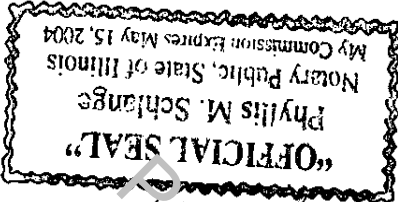 "OFFICIAL SEAL"
Phyllis M. Schlange
Notary Public, State of Illinois
My Commission Expires May 15, 2004